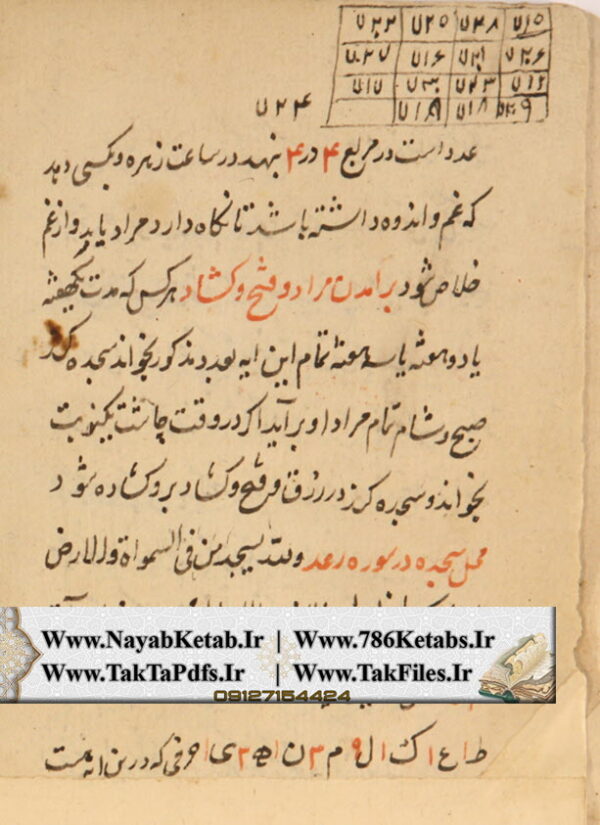 ۷۱۵ ۷۲۸ ۷۲۵ ۷۲۲
۷۲۶ ۷۲۱ ۷۱۶ ۷۲۷
۷۲۳ ۷۲۰ ۷۱۷
۷۱۸ ۷۱۹
۷۲۴
عدد است در مربع ۴ در ۴ بنهد در ساعت زهره و بکسی دهد
که غم و اندوه داشته باشد تا نکاه دارد مراد یابد و از غم
خلاص شود برامدن مراد و فتح و کشاد هر کس که مدت یکهفته
یا دو هفته یا سه هفته تمام این ایه بعدد مذکور بخواند سجده کند
صبح و شام تمام مراد او برآید اکر در وقت چاشت یکنوبت
بخواند و سجده کند در رزق و فتح و کشاد بر و کشاده شود
محل سجده در سوره رعد ولله یسجد من فی السمواة والارض
Www.NayabKetab.Ir | Www.786Ketabs.Ir
Www.TakTaPdfs.Ir | Www.TakFiles.Ir
09127154424
ط ا ع ا ک ا ل ۹ م ۳ ن ا ه ۲ ی ا حرفی که درین ایه هست